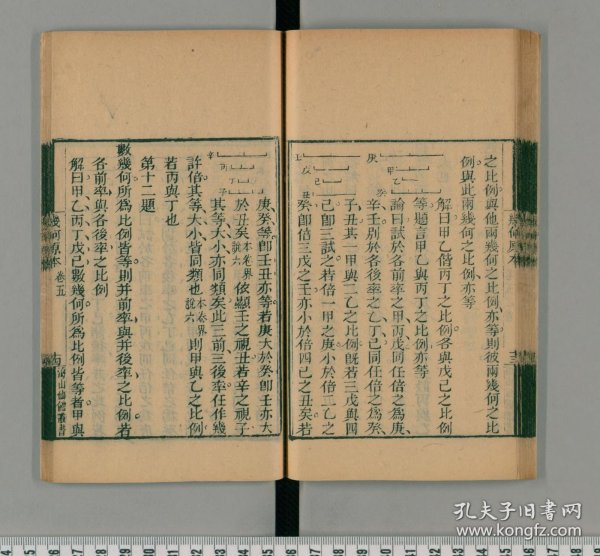 之比例與他兩幾何之比例亦等則彼兩幾何之比
例與此兩幾何之比例亦等
解曰甲乙偕丙丁之比例各與戊己之比例
等題言甲乙與丙丁之比例亦等
論曰試於各前率之甲丙戊同任倍之為庚
辛壬別於各後率之乙丁己同任倍之為癸
子丑其一甲與二乙之比例旣若三戊與四
己卽三試之若倍一甲之庚小於倍二乙之
癸卽倍三戊之壬亦小於倍四己之丑矣若
庚癸等卽壬丑亦等若庚大於癸卽壬亦大
於丑矣本卷界說六依顯壬之視丑若辛之視子
其等大小亦同類矣此三前三後率任作幾
許倍其等大小皆同類也本卷界說六則甲與乙之比例
若丙與丁也
第十二題
數幾何所為比例皆等則并前率與并後率之比例若
各前率與各後率之比例
解曰甲乙丙丁戊己數幾何所為比例皆等者甲與
幾何原本 卷五
海山仙館叢書
孔夫子旧书网
www.kongfz.com